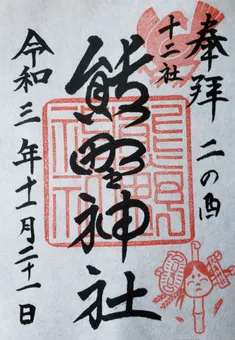 奉拝 二の酉
十二社
熊野神社
熊野
神社
令和三年十一月二十一日